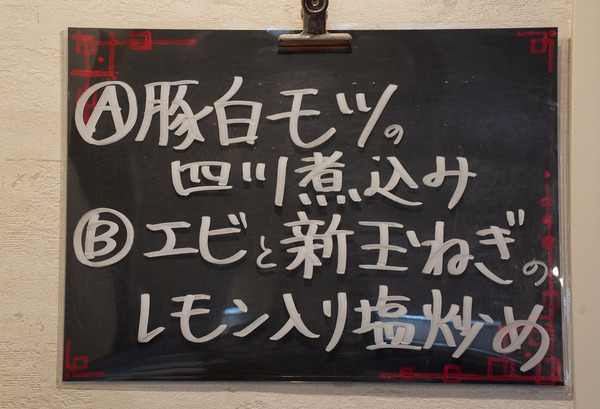 Ⓐ豚白モツの
四川煮込み
Ⓑエビと新玉ねぎの
レモン入り塩炒め